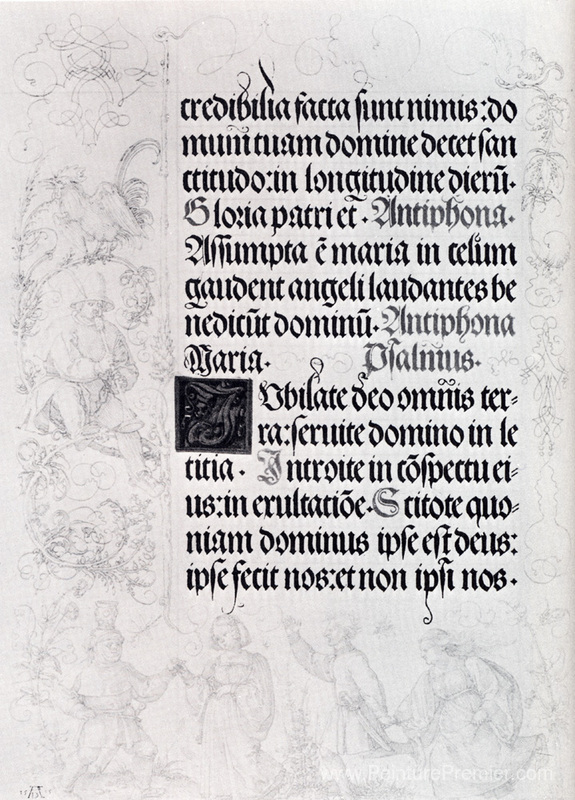 credibilia facta sunt nimis: do
mum tuam domine decet san
ctitudo: in longitudine dierū.
Gloria patri et. Antiphona.
Assumpta ē maria in celum
gaudent angeli laudantes be
nedicūt dominū. Antiphona
Maria. Psalmus.
IVbilate deo omnis ter⸗
ra: seruite domino in le
titia. Introite in cōspectu ei⸗
us: in exultatiōe. Scitote quo⸗
niam dominus ipse est deus:
ipse fecit nos: et non ipsi nos.
www.PeinturePremier.com